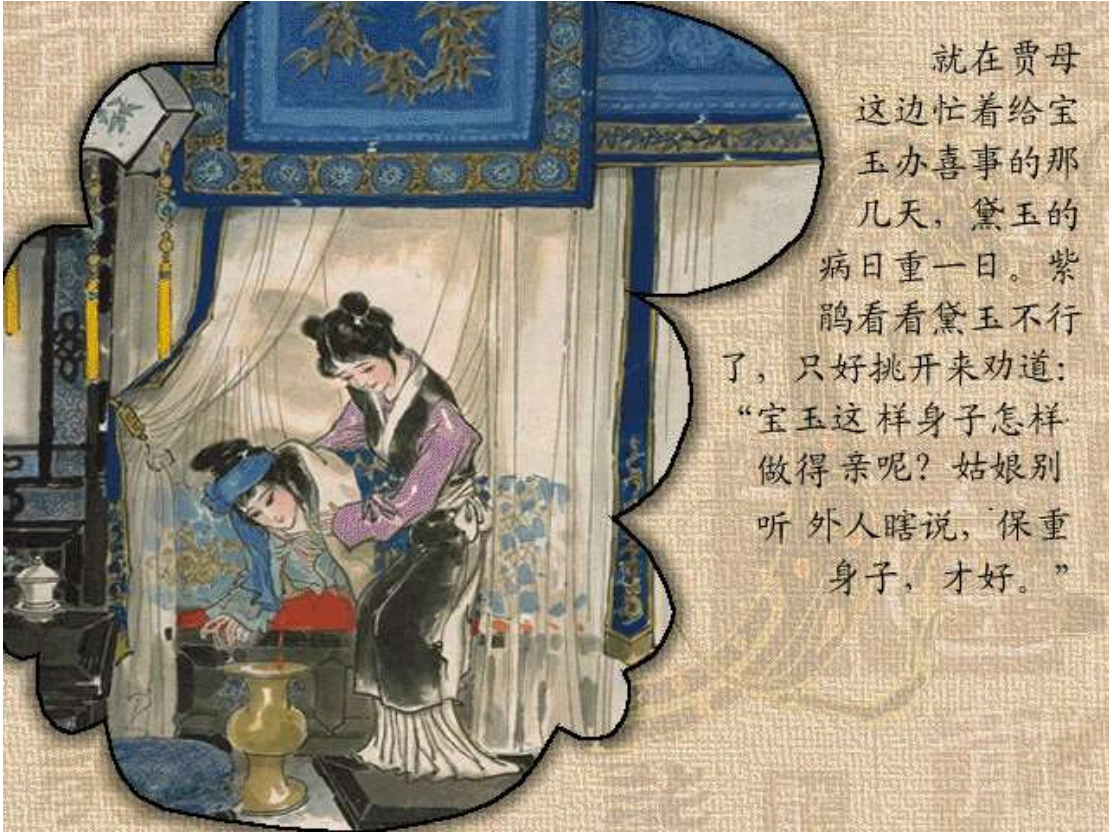 就在贾母
这边忙着给宝
玉办喜事的那
几天，黛玉的
病日重一日。紫
鹃看看黛玉不行
了，只好挑开来劝道：
“宝玉这 样身子怎样
做得 亲呢？姑娘别
听 外人瞎说，保重
身子，才好。”